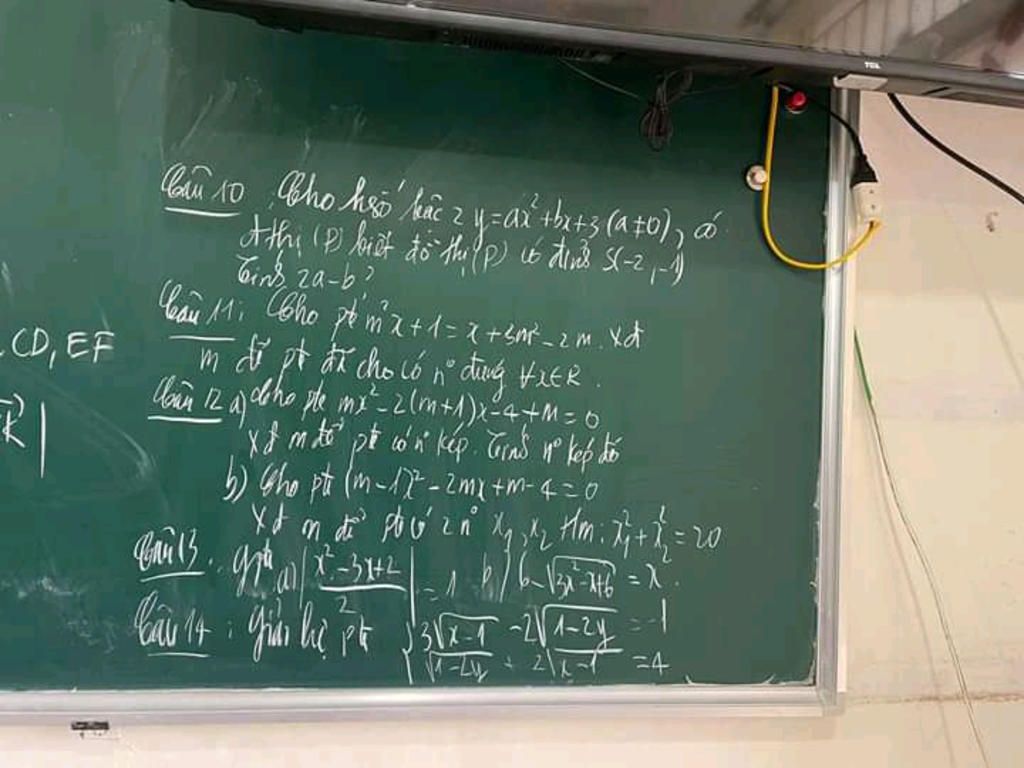 Câu 10: Cho hsố bậc 2 y = ax² + bx + 3 (a ≠ 0), có
đthị (P) biết đồ thị (P) có đỉnh S(-2, -1)
Tính 2a - b?
Câu 11: Cho pt m²x + 1 = x + 3m² - 2m. Xđ
m để pt đã cho có n° đúng ∀x∈R.
, CD, EF
Câu 12 a) Cho pt mx² - 2(m+1)x - 4 + m = 0
Xđ m để pt có n° kép. Tính n° kép đó
b) Cho pt (m-1)x² - 2mx + m - 4 = 0
Xđ m để pt có 2 n° x₁, x₂ thm: x₁² + x₂² = 20
Câu 13: Gpt a) |x² - 3x + 2 / 2| = 1 b) 6 - √(3x² - x + 6) = x².
Câu 14: Giải hệ pt { 3√(x-1) - 2√(1-2y) = -1
√(1-2y) + 2√(x-1) = 4